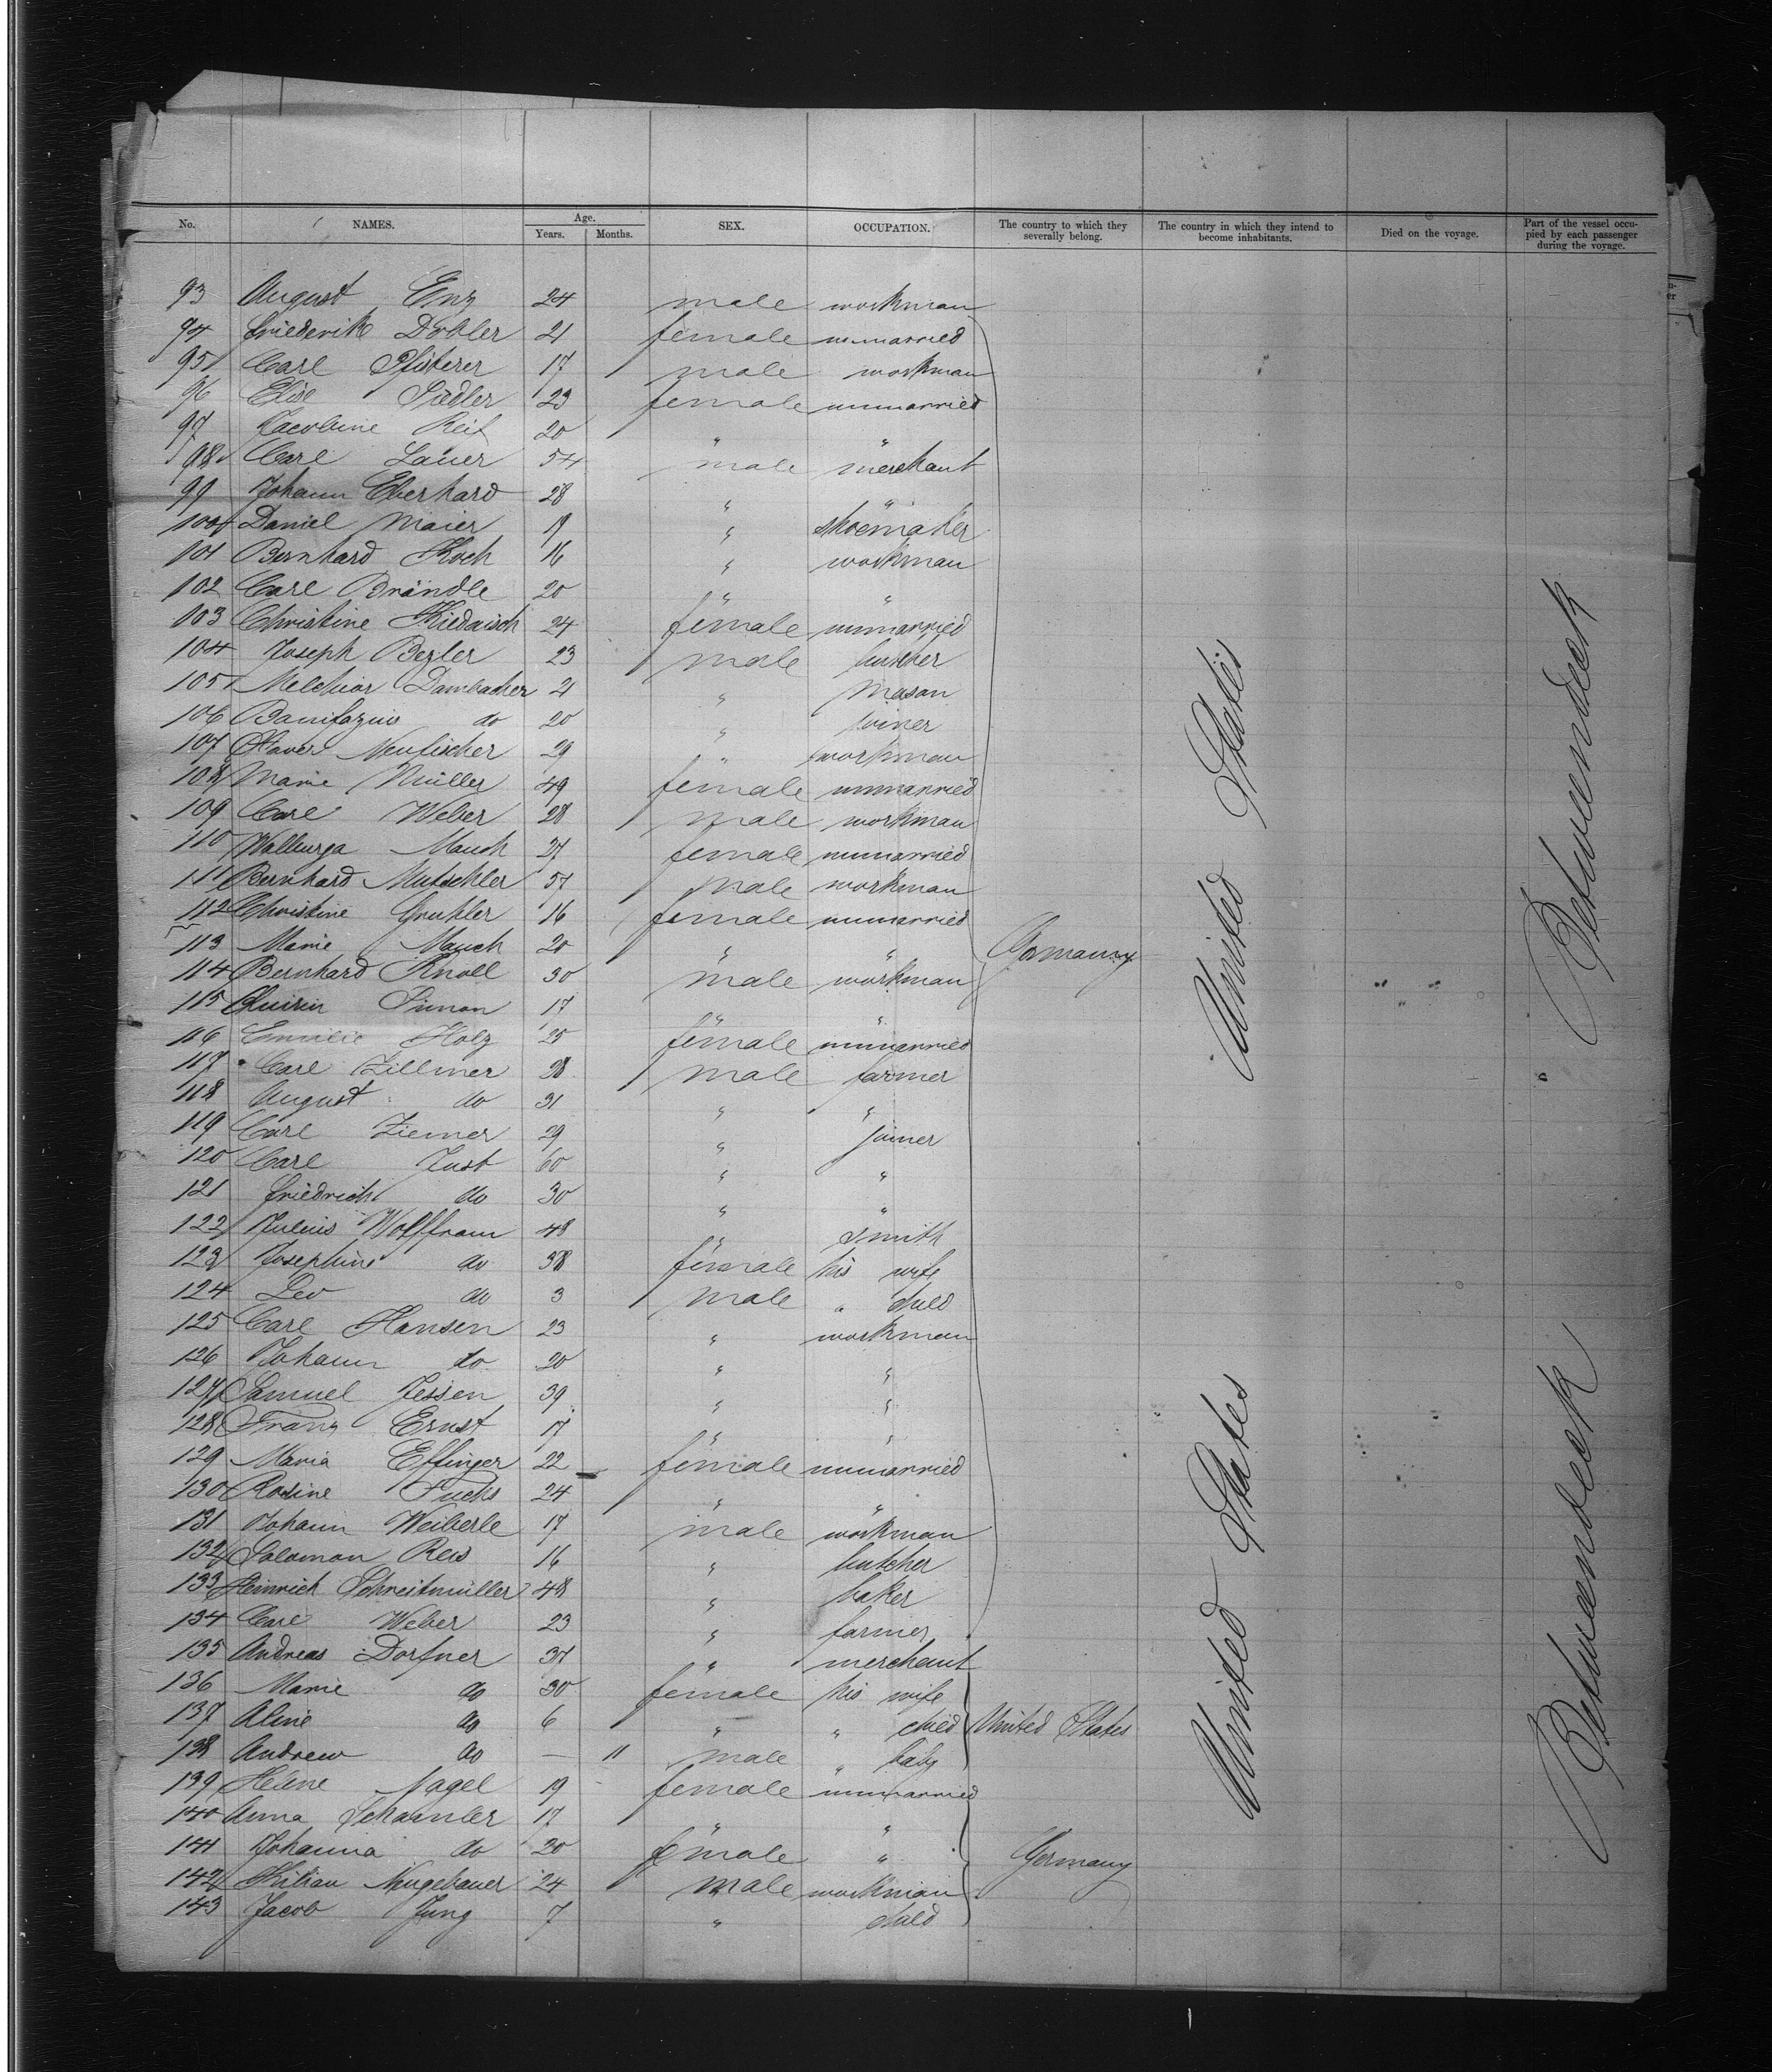 No. NAMES. Age. Years. Months. SEX. OCCUPATION. The country to which they severally belong. The country in which they intend to become inhabitants. Died on the voyage. Part of the vessel occupied by each passenger during the voyage.
93 August Enz 24 male workman
94 Friederike Dobler 21 female unmarried
95 Carl Pfisterer 17 male workman
96 Elise Siedler 23 female unmarried
97 Jacobine Reif 20 " "
98 Carl Lauer 54 male merchant
99 Johann Eberhard 28 " "
100 Daniel Maier 19 " shoemaker
101 Bernhard Koch 16 " workman
102 Carl Brändle 20 " "
103 Christine Kiedaisch 24 female unmarried
104 Joseph Bezler 23 male butcher
105 Melchior Dambacher 21 " Mason
106 Bonifazius do 20 " joiner
107 Xaver Neufischer 29 " workman
108 Marie Müller 49 female unmarried
109 Carl Weber 28 male workman
110 Walburga Mauch 27 female unmarried
111 Bernhard Mutschler 57 male workman
112 Christine Gruhler 16 female unmarried
113 Marie Mauch 20 " "
114 Bernhard Knoll 30 male workman
115 Quirin Simon 17 " "
116 Emilie Holz 25 female unmarried
117 Carl Zillmer 28 male farmer
118 August do 31 " "
119 Carl Ziemer 29 " joiner
120 Carl Just 60 " "
121 Friedrich do 30 " "
122 Julius Wolffram 48 " smith
123 Josephine do 38 female his wife
124 Leo do 3 male " child
125 Carl Hansen 23 " workman
126 Johann do 20 " "
127 Samuel Jessen 39 " "
128 Franz Ernst 17 " "
129 Maria Effinger 22 female unmarried
130 Rosine Fuchs 24 " "
131 Johann Weiberle 17 male workman
132 Salomon Reis 16 " butcher
133 Heinrich Schreitmüller 48 " baker
134 Carl Weber 23 " farmer
Germany
135 Andreas Dorfner 37 " merchant
136 Marie do 30 female his wife
137 Aline do 6 " " child
138 Andrew do — 11 male " baby
United States
139 Helene Nagel 19 female unmarried
140 Anna Schaumler 17 " "
141 Johanna do 20 female "
142 Kilian Neugebauer 24 male workman
143 Jacob Jung 7 " child
Germany
United States
United States
Betweendeck
Betweendeck